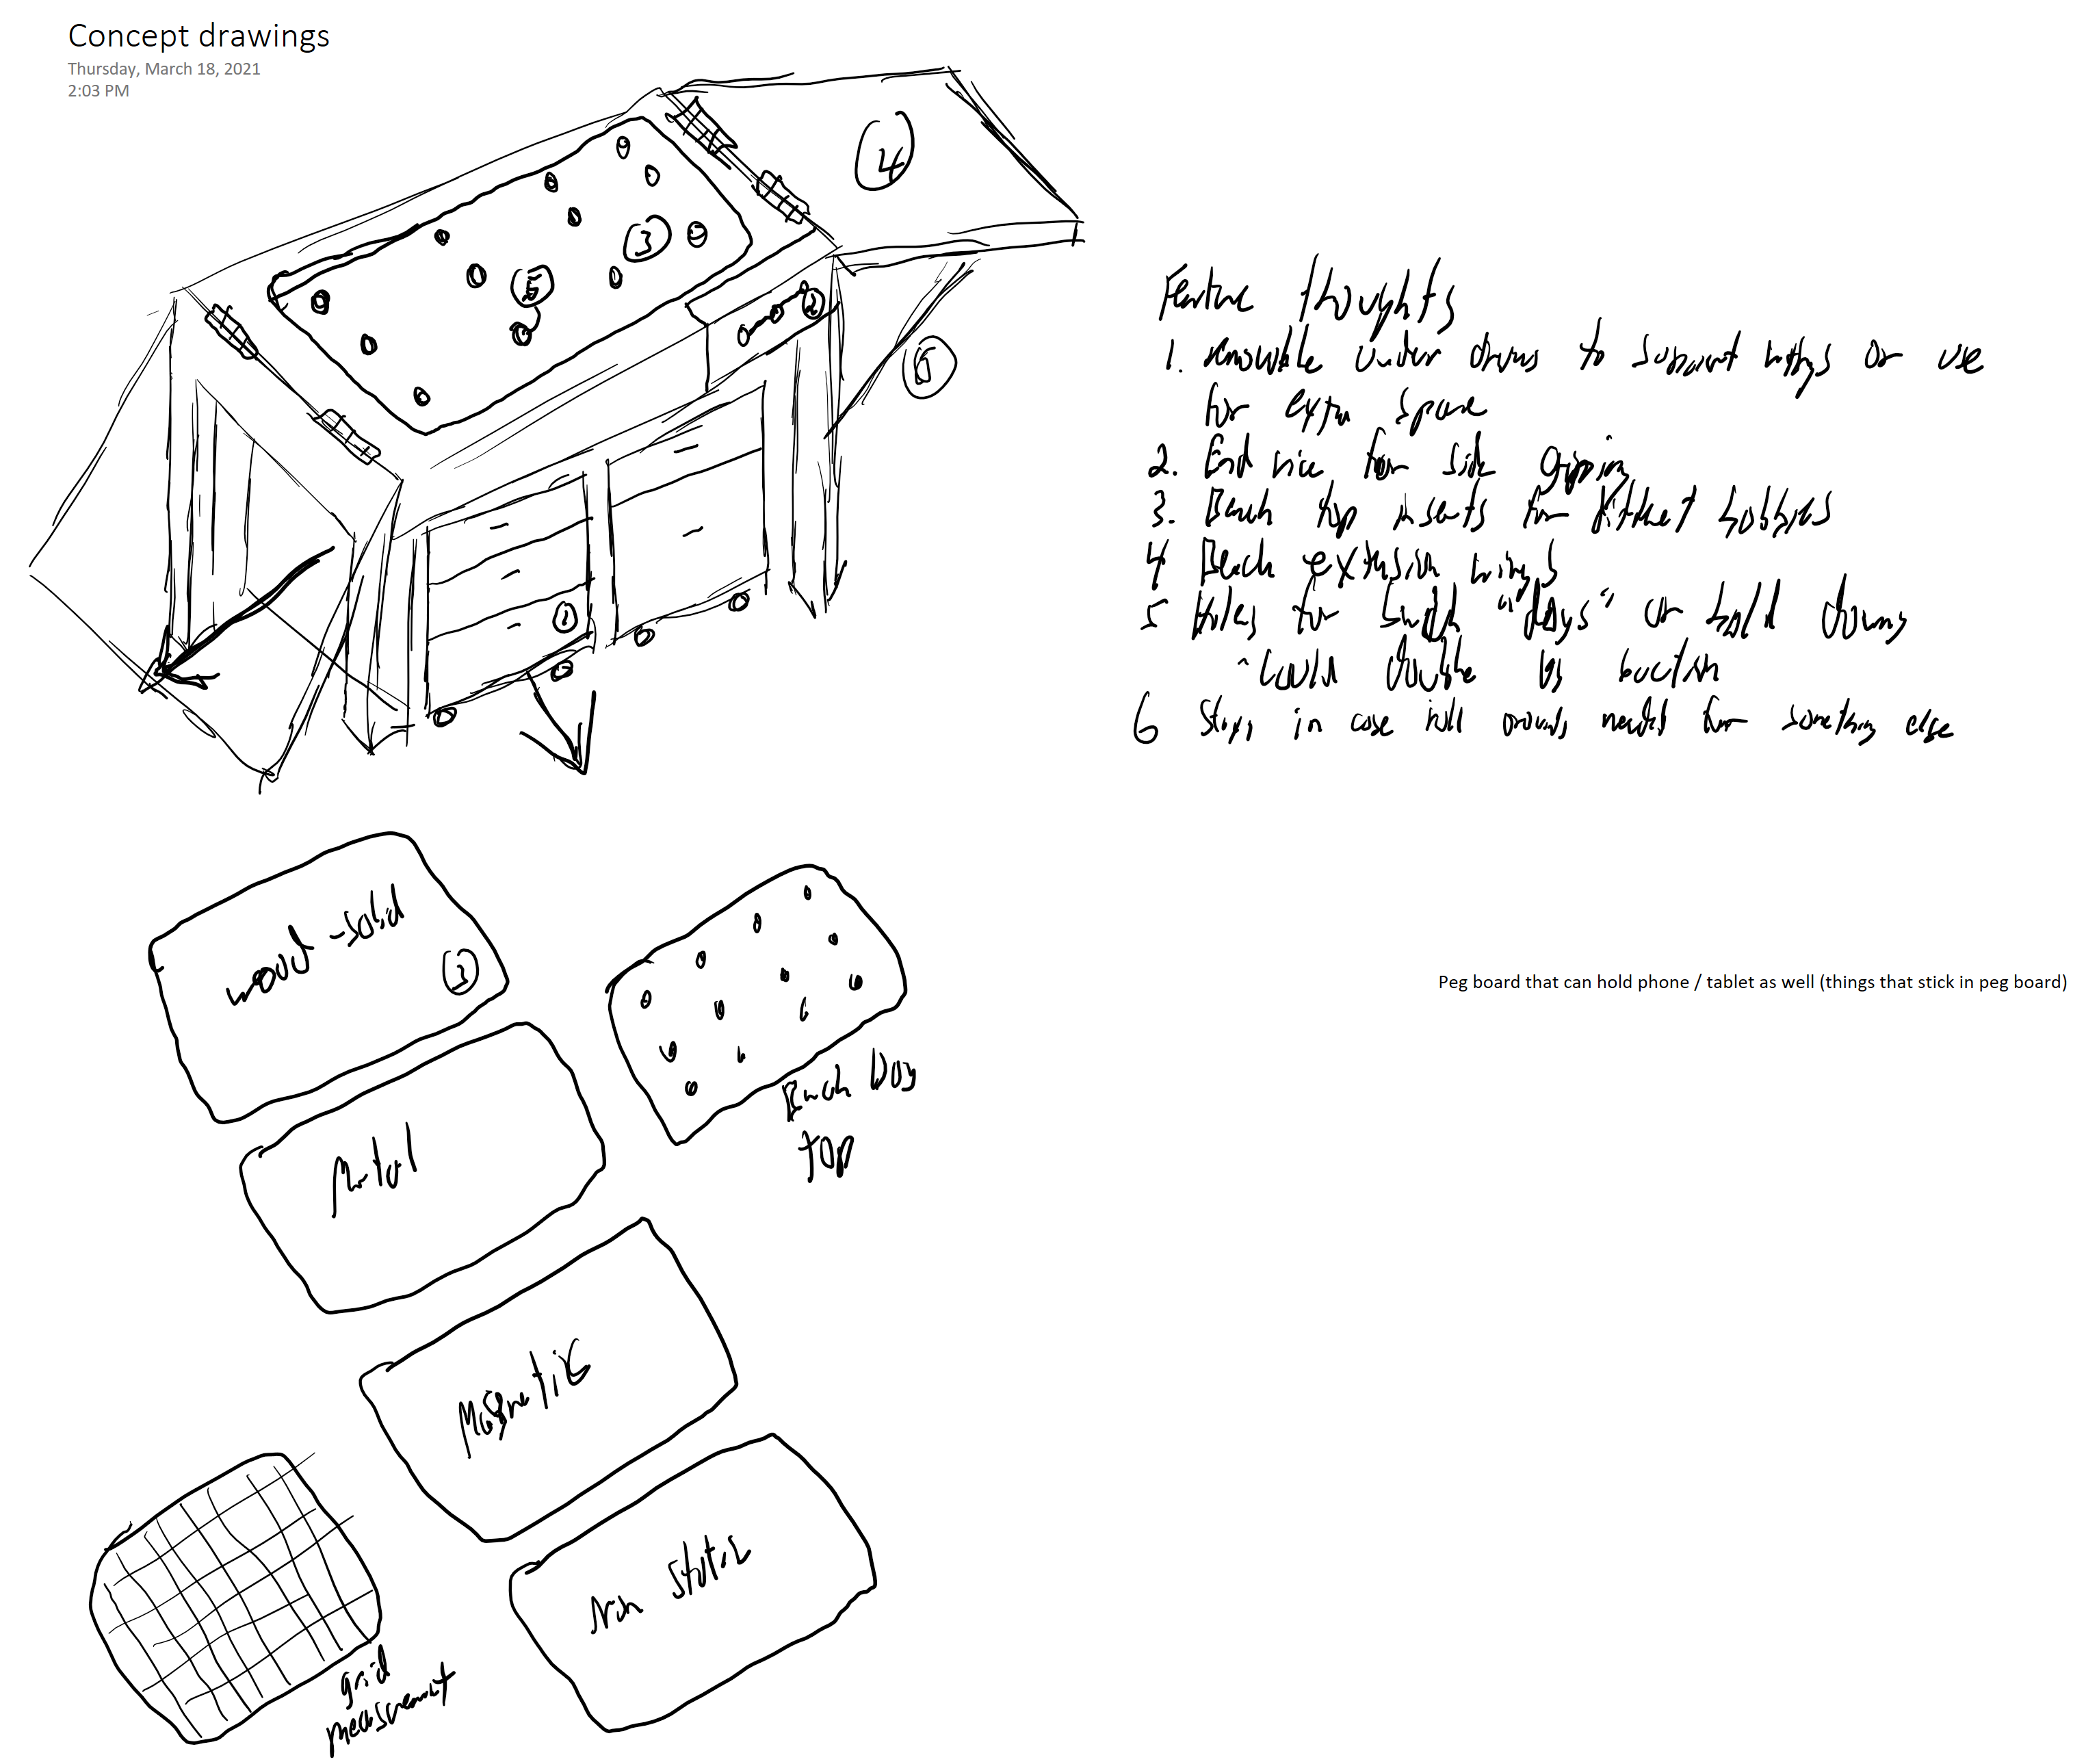 Concept drawings
Thursday, March 18, 2021
2:03 PM
4
3
5
2
6
1
Feature thoughts
1. removable under draws to support wings or use
for extra space
2. End vice for side gripping
3. Bench top inserts for different hobbies
4 Bench extension wings
5 Holes for bench "dogs" or hold downs
-could double as suction
6 Stops in case roll arounds needed for something else
wood - solid
3
Bench Dog
top
Metal
Peg board that can hold phone / tablet as well (things that stick in peg board)
Magnetic
Non static
grid
measurement